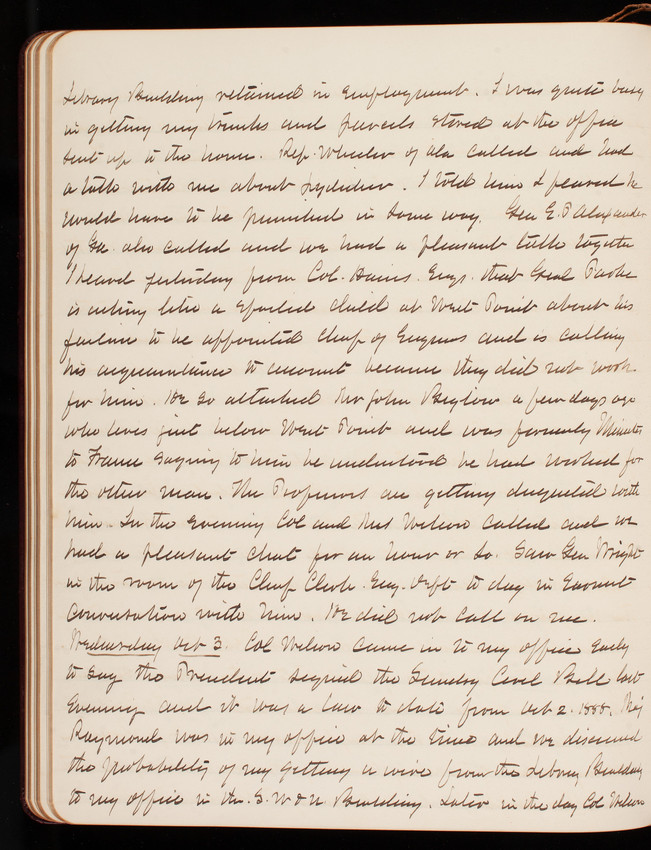 Library Building retained in employment. I was quite busy
in getting my trunks and parcels stored at the office
sent up to the home. Rep. Wheeler of Ala called and had
a talk with me about . I told him I feared he
would have to be punished in some way. Gen E. P Alexander
of Ga. also called and we had a pleasant talk together
I heard yesterday from Col. Hains. Engs. that Genl Parke
is acting like a spoiled child at West Point about his
failure to be appointed Chief of Engineers and is calling
his acquaintance to account because they did not work
for him. He so attacked Mr John Bigelow a few days ago
who lives just below West Point and was formerly Minister
to France saying to him he understood he had worked for
the other man. The Professors are getting disgusted with
him. In the evening Col and Mrs Wilson called and we
had a pleasant chat for an hour or so. Saw Gen Wright
in the room of the Chief Clerk. Eng. Dept to day in earnest
conversation with him. He did not call on me.
Wednesday Oct 3. Col Wilson came in to my office early
to say the President signed the Sundry Civil Bill last
evening and it was a law to date from Oct 2. 1888. Maj
Raymond was in my office at the time and we discussed
the probability of my getting a wire from the Library Building
to my office in the S. W & N. Building. Later in the day Col Wilson